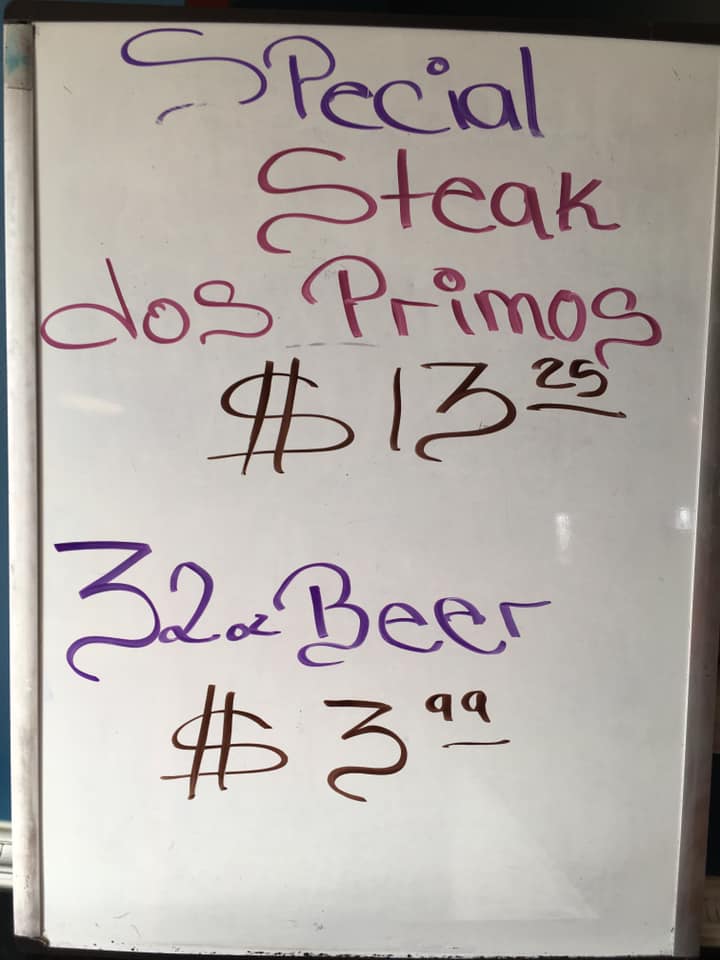 Special
Steak
dos Primos
$ 13 25
32oz Beer
$ 3 99